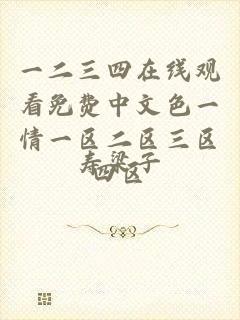 一二三四在线观
看免费中文色一
情一区二区三区
四区
寿梁子